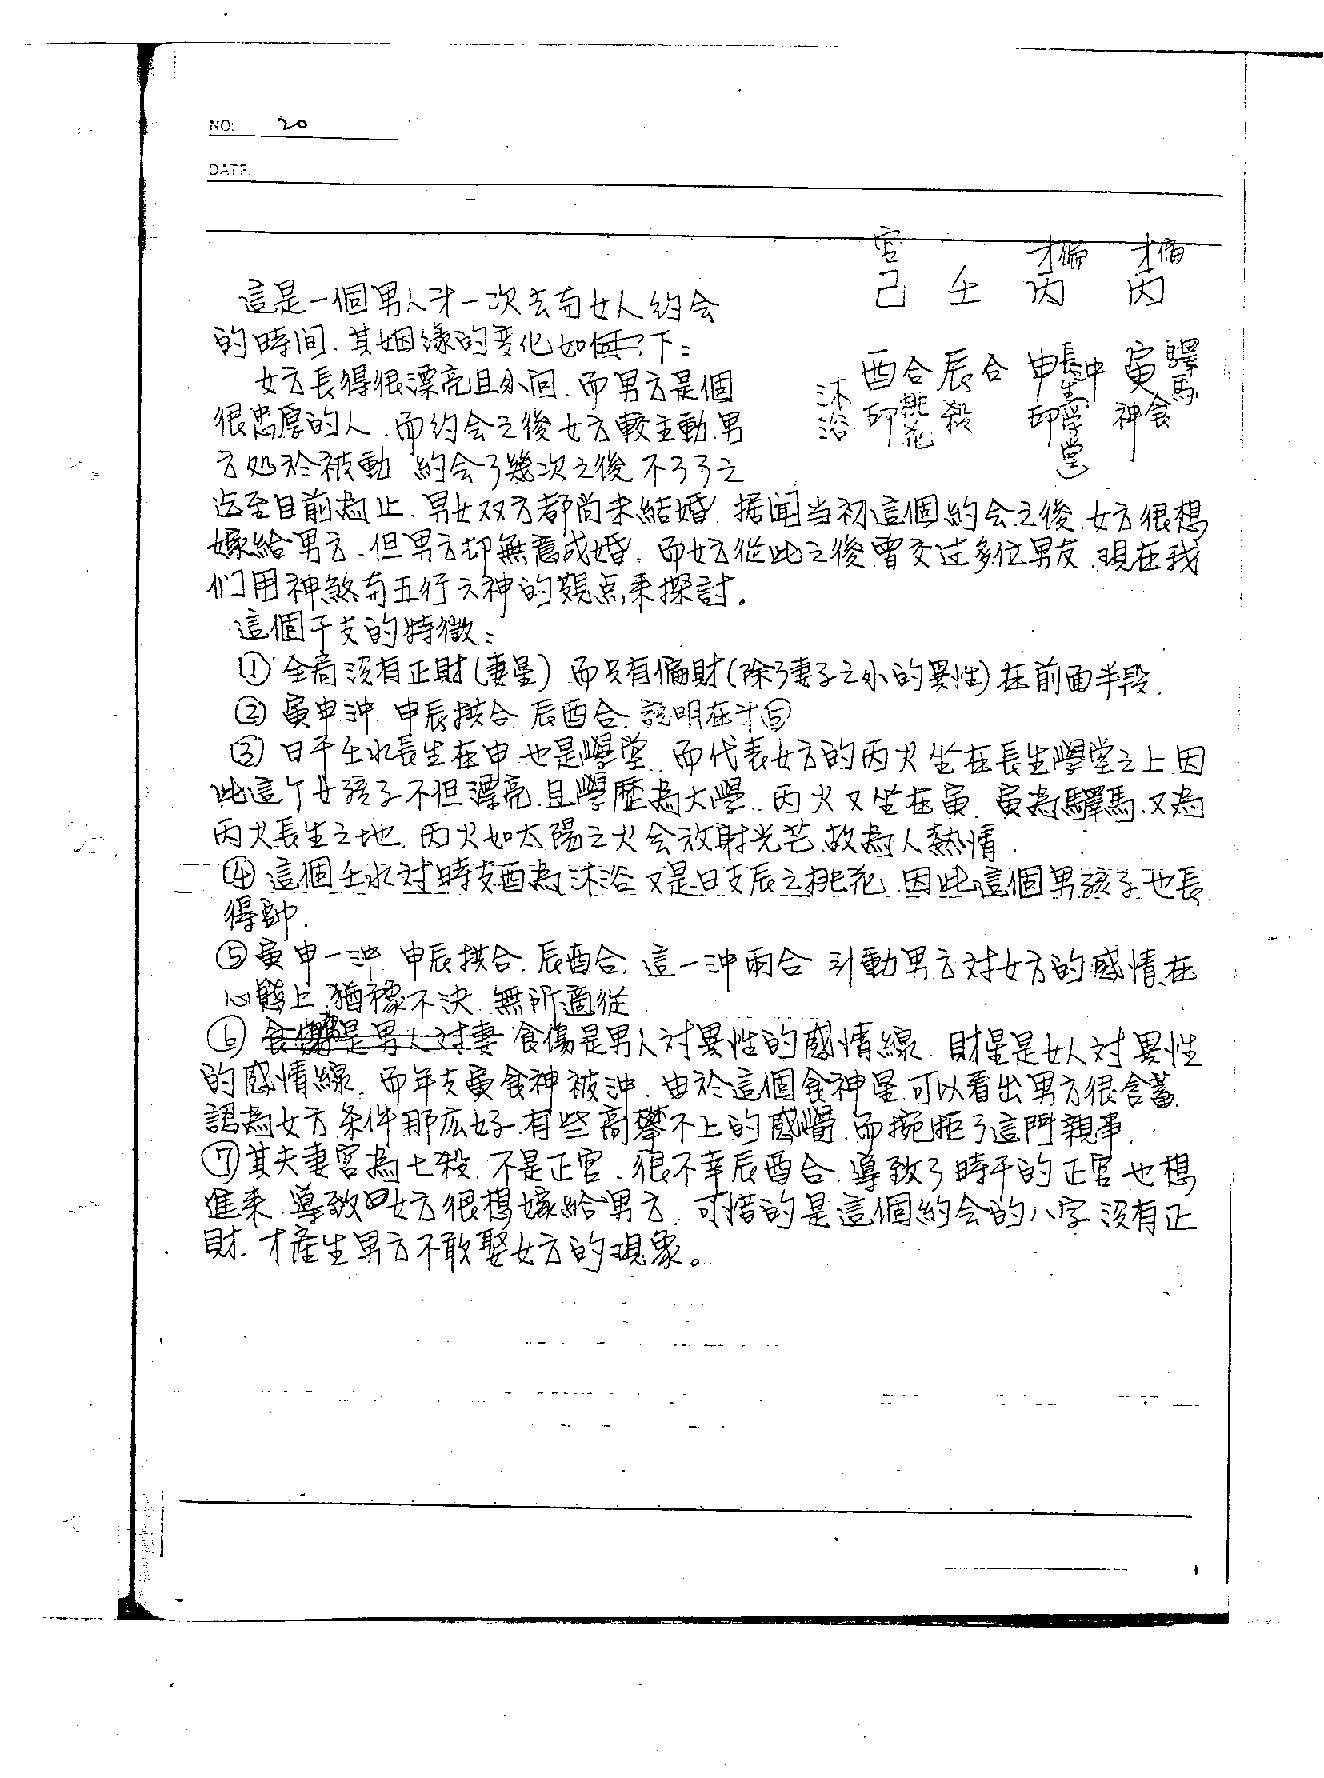 NO: 20
DATE
官 才偏 才偏
己 壬 丙 丙
酉合辰合 申沖 寅 驛馬
沐浴 印 桃花 殺 印 長生學堂 食神
這是一個男人才一次去与女人約会
的時間.其姻缘的变化如下:
女方長得很漂亮且外向.而男方是個
很忠厚的人.而約会之後女方較主動.男
方処於被動 約会了幾次之後不了了之
迄至目前為止.男女双方都尚未結婚.据聞当初這個約会之後.女方很想
嫁給男方.但男方却無意成婚.而女方從此之後曾交过多位男友.現在我
们用神煞与五行六神的観点來探討。
這個干支的特徵:
① 全局沒有正財(妻星) 而只有偏財(除了妻子之外的異性)在前面半段.
② 寅申沖 申辰拱合 辰酉合.說明在才⑤
③ 日干壬水長生在申 也是學堂.而代表女方的丙火坐在長生學堂之上.因
此這个女孩子不但漂亮.且學歷為大學.丙火又坐在寅.寅為驛馬.又為
丙火長生之地.丙火如太陽之火会放射光芒.故為人熱情.
④ 這個壬水对時支酉為沐浴 又是日支辰之桃花.因此這個男孩子也長
得帥.
⑤ 寅申一沖 申辰拱合.辰酉合.這一沖兩合 引動男方对女方的感情.在
心態上.猶豫不決.無所適從
⑥ 食傷是男人对妻 食傷是男人対異性的感情線.財星是女人対異性
的感情線.而年支寅食神被沖.由於這個食神星.可以看出男方很含蓄.
認為女方条件那広好.有些高攀不上的感覺.而婉拒了這門親事.
⑦ 其夫妻宮為七殺.不是正官.很不幸辰酉合.導致了時干的正官也想
進來.導致女方很想嫁給男方.可惜的是這個約会的八字沒有正
財.才産生男方不敢娶女方的現象。